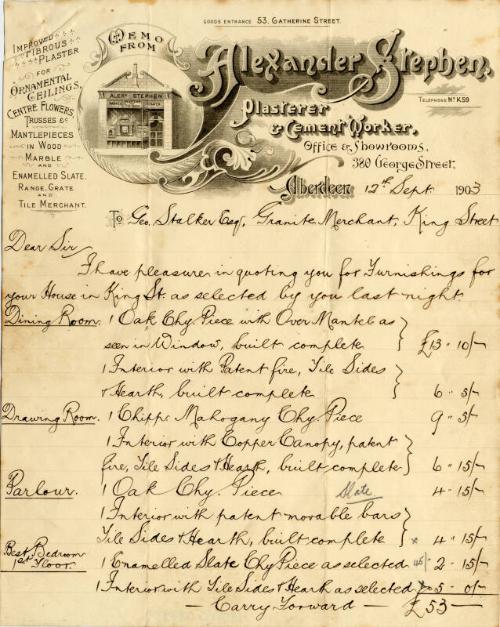 GOODS ENTRANCE 53, CATHERINE STREET.
IMPROVED
FIBROUS
PLASTER
FOR
ORNAMENTAL
CEILINGS,
CENTRE FLOWERS,
TRUSSES &c
MANTELPIECES
IN WOOD
MARBLE
AND
ENAMELLED SLATE.
RANGE, GRATE
AND
TILE MERCHANT.
MEMO
FROM
ALEXR STEPHEN
Alexander Stephen,
TELEPHONE No K59
Plasterer
& Cement Worker,
Office & Showrooms,
380 George Street.
Aberdeen 12th Sept 1903
To Geo. Stalker Esq, Granite Merchant, King Street
Dear Sir
I have pleasure in quoting you for Furnishings for
your House in King St. as selected by you last night
Dining Room. 1 Oak Chy. Piece with Over Mantel as
seen in Window, built complete } £13 " 10/-
1 Interior with Patent fire, Tile Sides
& Hearth, built complete } 6 " 5/-
Drawing Room. 1 Chipps Mahogany Chy. Piece 9 " 5/-
1 Interior with Copper Canopy, patent
fire, Tile Sides & Hearth, built complete } 6 " 15/-
Parlour. 1 Oak Chy. Piece Slate 4 " 15/-
1 Interior with patent movable bars
Tile Sides & Hearth, built complete } x 4 " 15/-
Best Bedroom
1st Floor. 1 Enamelled Slate Chy Piece as selected 45/- 2 " 15/-
1 Interior with Tile Sides & Hearth as selected 5 " 0/-
— Carry Forward — £53 —